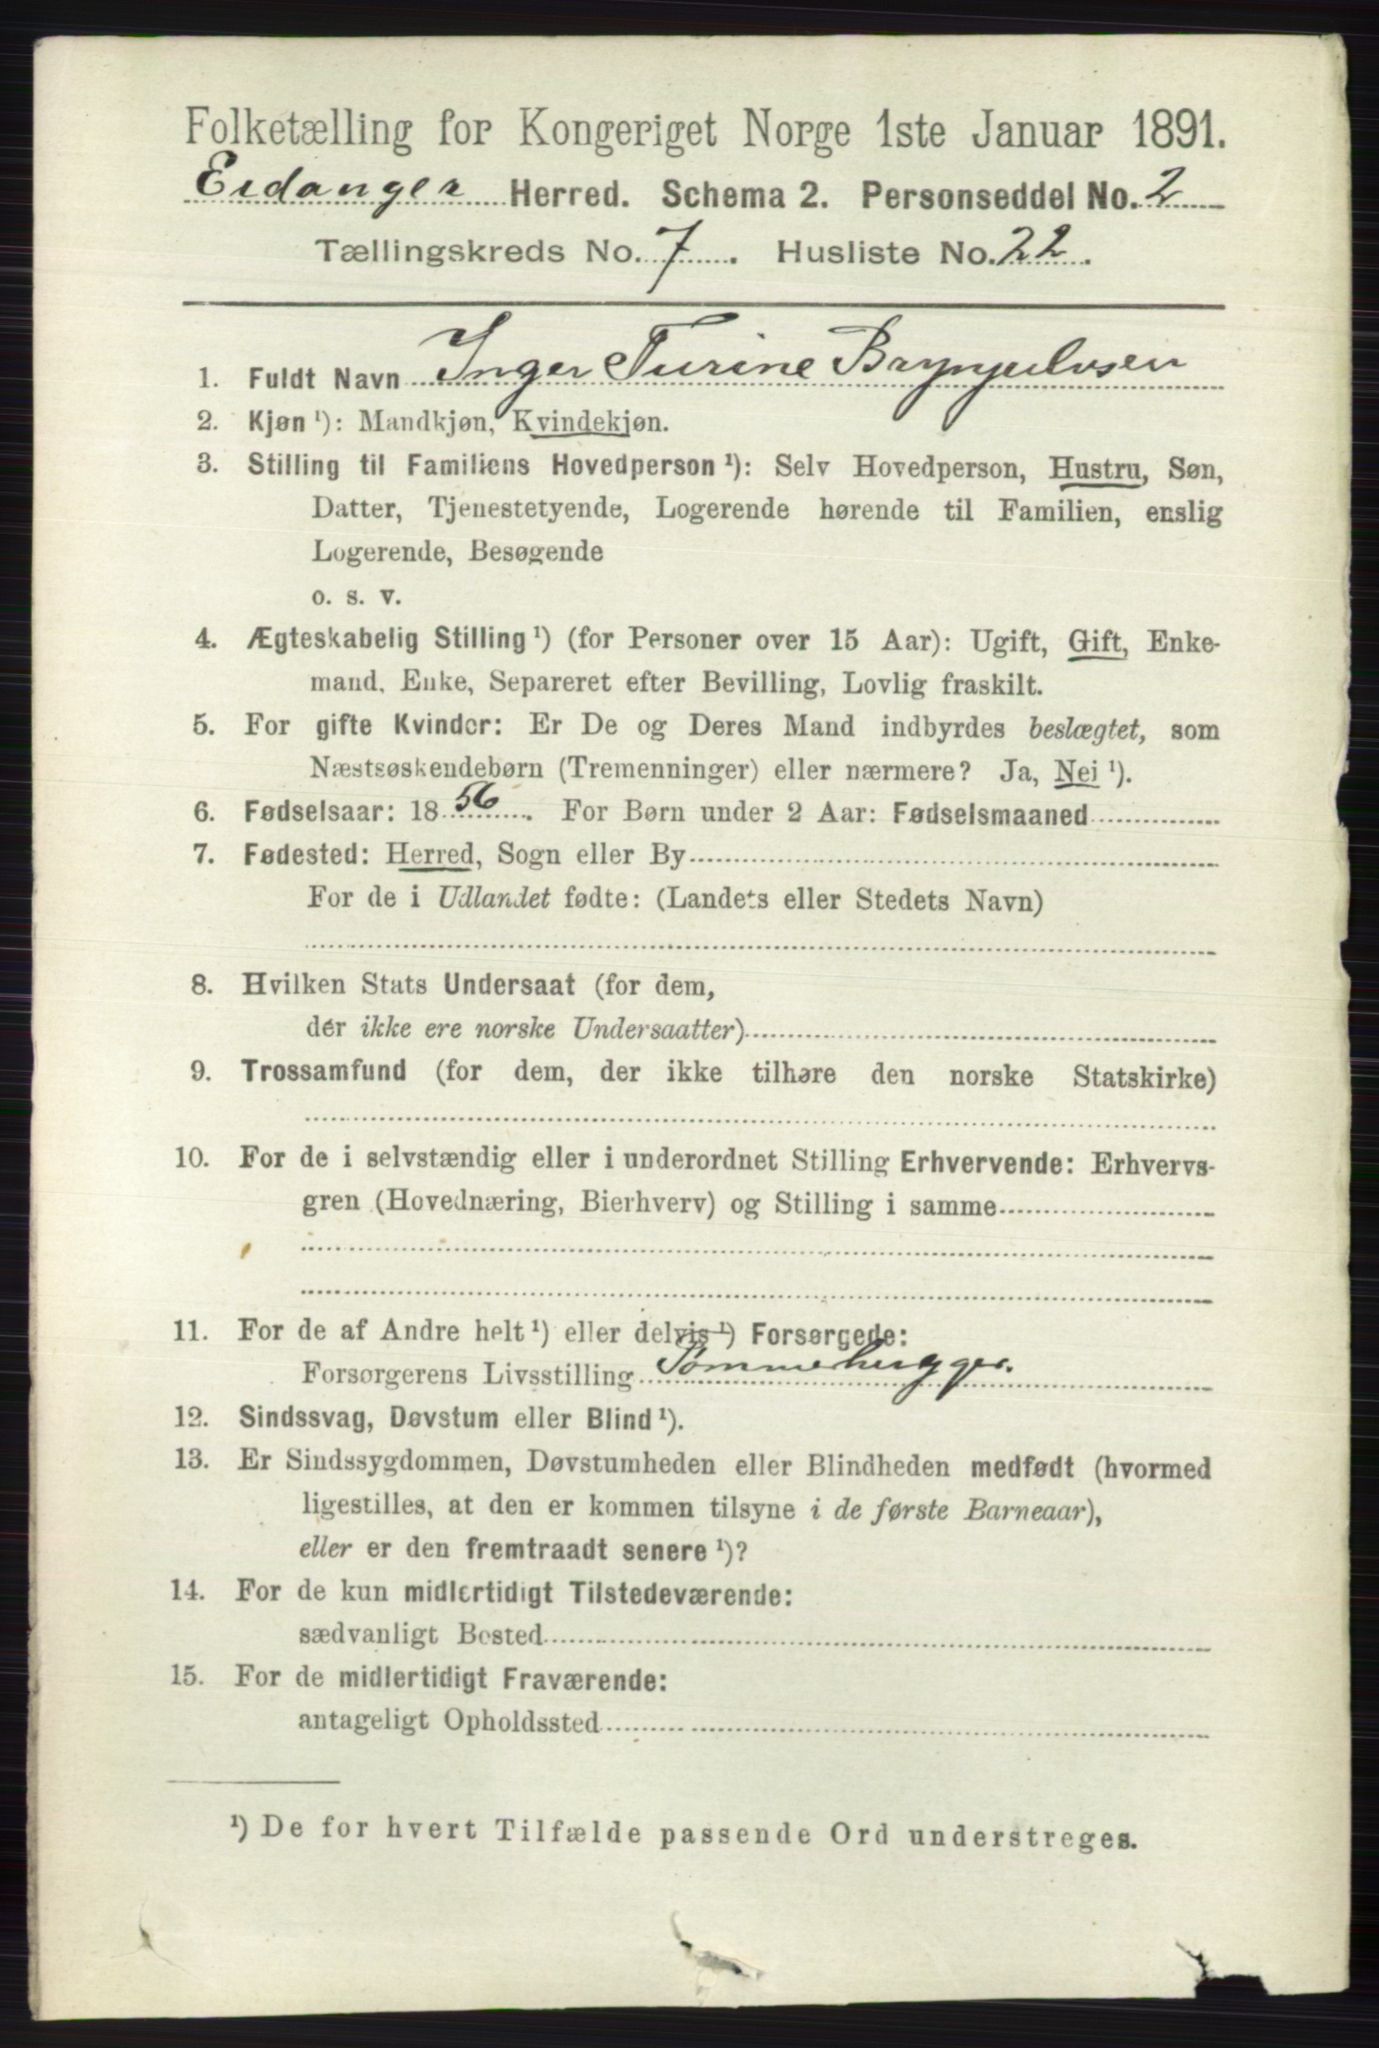 Folketælling for Kongeriget Norge 1ste Januar 1891.
Eidanger Herred. Schema 2. Personseddel No. 2
Tællingskreds No. 7. Husliste No. 22.
1. Fuldt Navn Inger Turine Brynjulvsen
2. Kjøn ¹): Mandkjøn, Kvindekjøn.
3. Stilling til Familiens Hovedperson ¹): Selv Hovedperson, Hustru, Søn,
Datter, Tjenestetyende, Logerende hørende til Familien, enslig
Logerende, Besøgende
o. s. v.
4. Ægteskabelig Stilling ¹) (for Personer over 15 Aar): Ugift, Gift, Enke-
mand, Enke, Separeret efter Bevilling, Lovlig fraskilt.
5. For gifte Kvinder: Er De og Deres Mand indbyrdes beslægtet, som
Næstsøskendebørn (Tremenninger) eller nærmere? Ja, Nei ¹).
6. Fødselsaar: 1856. For Børn under 2 Aar: Fødselsmaaned
7. Fødested: Herred, Sogn eller By
For de i Udlandet fødte: (Landets eller Stedets Navn)
8. Hvilken Stats Undersaat (for dem,
der ikke ere norske Undersaatter)
9. Trossamfund (for dem, der ikke tilhøre den norske Statskirke)
10. For de i selvstændig eller i underordnet Stilling Erhvervende: Erhvervs-
gren (Hovednæring, Bierhverv) og Stilling i samme
11. For de af Andre helt ¹) eller delvis ¹) Forsørgede:
Forsørgerens Livsstilling Tømmerhugger.
12. Sindssvag, Døvstum eller Blind ¹).
13. Er Sindssygdommen, Døvstumheden eller Blindheden medfødt (hvormed
ligestilles, at den er kommen tilsyne i de første Barneaar),
eller er den fremtraadt senere ¹)?
14. For de kun midlertidigt Tilstedeværende:
sædvanligt Bosted
15. For de midlertidigt Fraværende:
antageligt Opholdssted
¹) De for hvert Tilfælde passende Ord understreges.